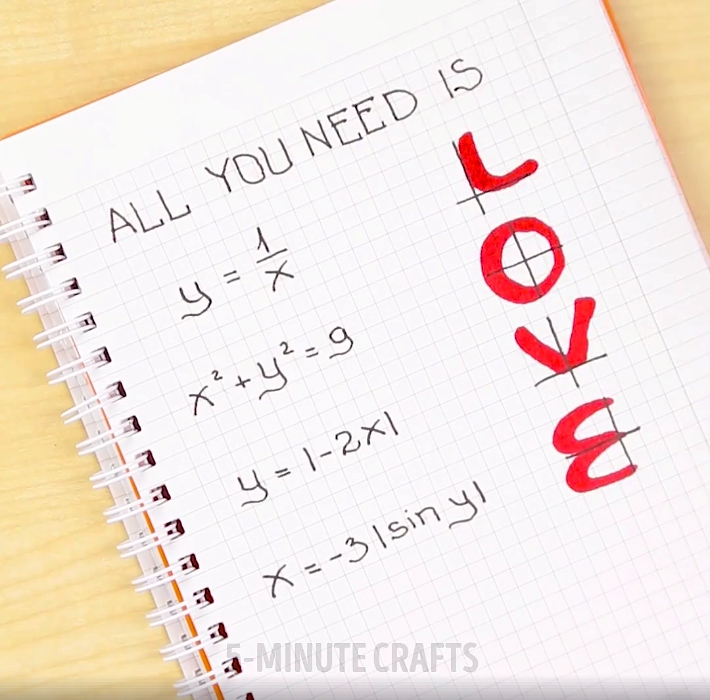 ALL YOU NEED IS
L
y = 1/x
O
x² + y² = 9
V
y = |-2x|
E
x = -3|sin y|
5-MINUTE CRAFTS